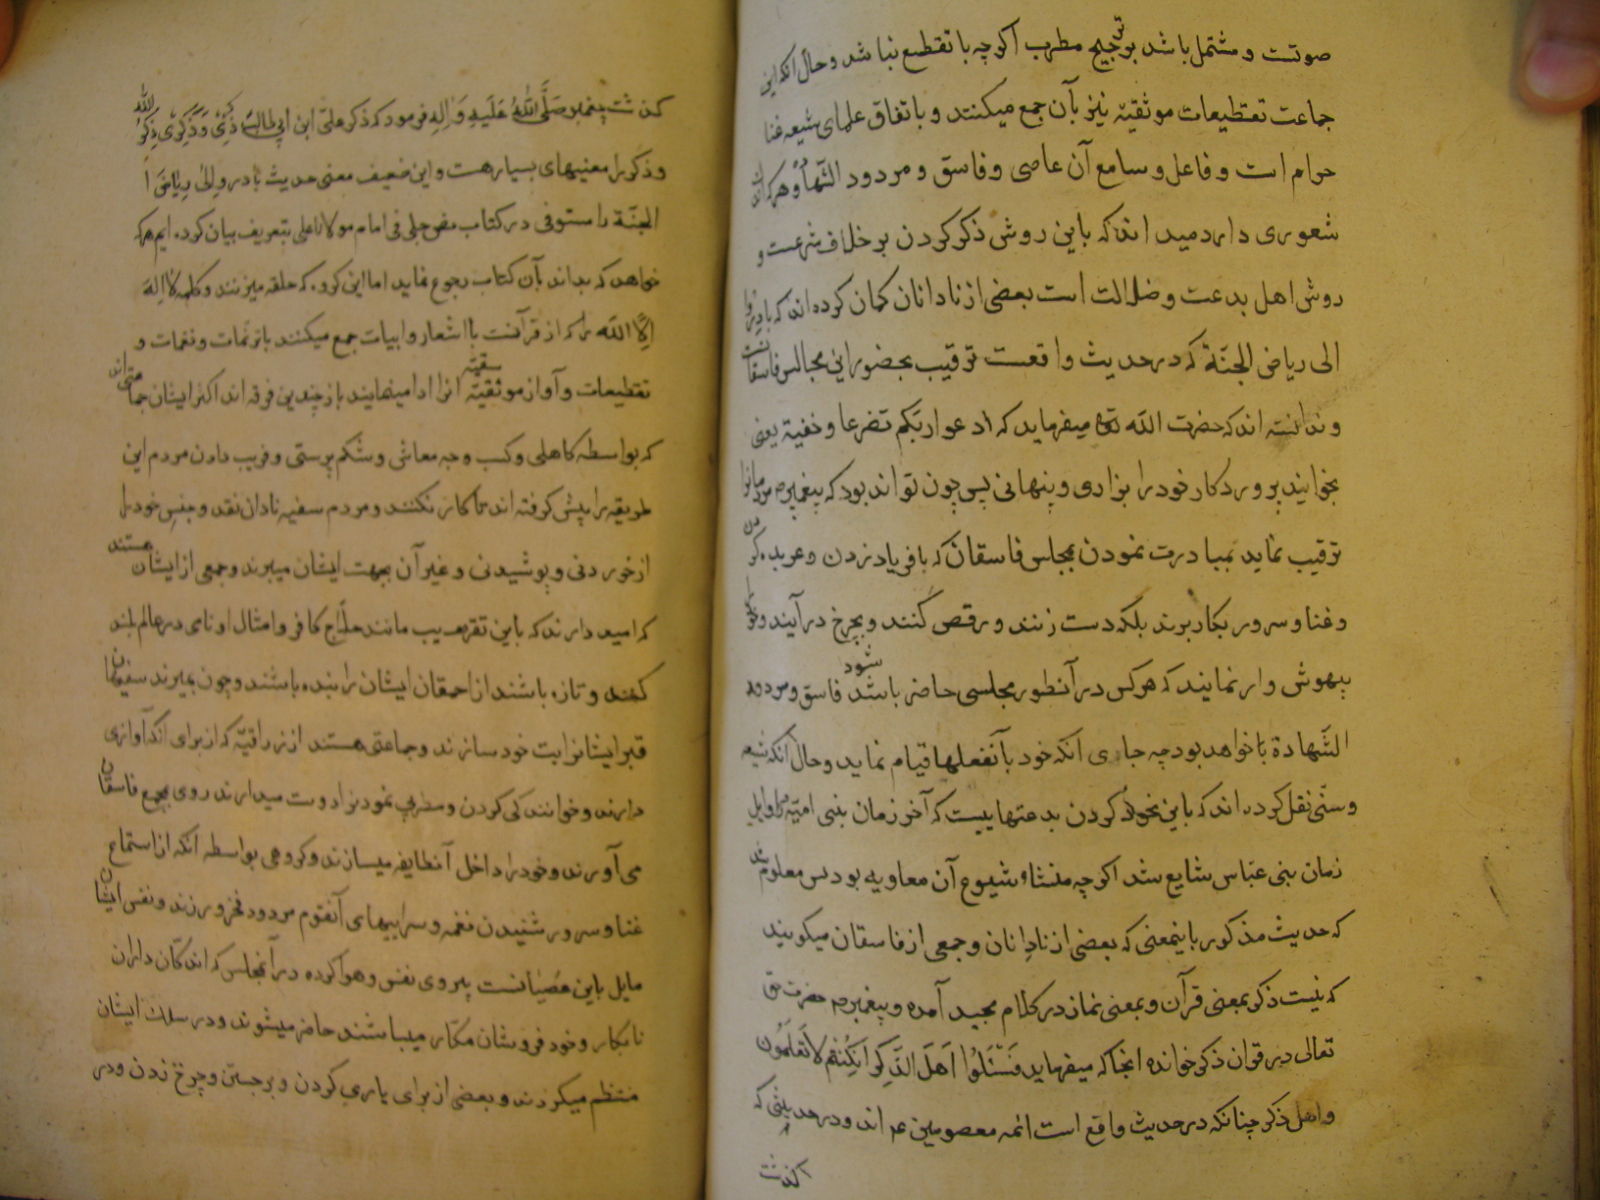 صوتست و مشتمل باشد بر ترجیح مطرب اکرچه با تقطیع نباشد و حال آنکه این
جماعت تقطیعات موثقیه نیز بآن جمع میکنند و باتفاق علمای شیعه غنا
حرام است و فاعل و سامع آن عاصی و فاسق و مردود الشهاده و هرکه اندک
شعوری دارد میداند که باین روش ذکر کردن بر خلاف شرعست و
روش اهل بدعت و ضلالت است بعضی از نادانان کمان کرده اند که بادروا
الی ریاض الجنة که در حدیث واقعست ترقیب بحضور این مجالس فاسقانست
و ندانسته اند که حضرت الله تعالی میفرماید که ادعوا ربکم تضرعا و خفیة یعنی
بخوانید پروردکار خود را بزاری و پنهانی پس چون تواند بود که پیغمبر مردمانرا
ترقیب نماید بمبادرت نمودن بمجلس فاسقان که بافریاد زدن و عربده کردن
و غنا و سرور بکار برند بلکه دست زنند و رقص کنند و بچرخ درآیند و خود را
بیهوش وار نمایند که هرکس در آنطور مجلسی حاضر شود باشد فاسق و مردود
الشهادة با خواهد بود چه جای آنکه خود بآنفعلها قیام نماید و حال آنکه شیعه
و سنی نقل کرده اند که باین نحو ذکر کردن بدعتهاییست که آخر زمان بنی امیه و اوایل
زمان بنی عباس شایع شد اکرچه منشاء شیوع آن معاویه بود پس معلوم شد
که حدیث مذکور باینمعنی که بعضی از نادانان و جمعی از فاسقان میکویند
که نیست ذکر بمعنی قرآن و بمعنی نماز در کلام مجید آمده و پیغمبر حضرت حق
تعالی در قران ذکر خوانده انجا که میفرماید فَسْئَلُوا اَهَلَ الذِّکْرِ اِنْ کُنْتُمْ لا تَعْلَمُون
و اهل ذکر چنانکه در حدیث واقع است ائمه معصومین عم اند و در حدیثی که
کذشت
کذشت پیغمبر صَلَّی اللهُ عَلَیهِ وَ الِهِ فرمود که ذکر علی ابن ابی طالب ذِکْرِی وَ ذِکْرِی ذِکْرُ الله
و ذکر را معنیهای بسیار هست و این ضعیف معنی حدیث بادروا الی ریاض
الجنة را مستوفی در کتاب نص جلی فی امام مولانا علی بتعریف بیان کرده ایم هرکه
خواهد که بداند بآن کتاب رجوع نماید اما این کروه که حلقه میزنند و کلمه لا اله
اِلّا الله را که از قرآنست با اشعار و ابیات جمع میکنند با ترنمات و نغمات و
تقطیعات و آواز موثقیه سقیته انرا ادا مینمایند باز چندین فرقه اند اکثر ایشان جماعتی اند
که بواسطه کاهلی و کسب وجه معاش و شکم پرستی و فریب دادن مردم این
طریقه را پیش کرفته اند تا کار نکنند و مردم سفیه نادان نقد و جنس خود را
از خوردنی و پوشیدنی و غیر آن بجهت ایشان میبرند و جمعی از ایشان هستند
که امید دارند که باین تقریب مانند حلاج کافر و امثال او نامی در عالم بلند
کنند و تازه باشند از احمقان ایشان را بنده باشند و چون بمیرند سفیهان
قبر ایشانرا بت خود سازند و جماعتی هستند از زراقیه که از برای آنکه آوازی
دارند و خوانندکی کردن و مطربی نمودنرا دوست میدارند روی بجمع فاسقان
می آورند و خود را داخل آنطایفه میسازند و کروهی بواسطه آنکه از استماع
غنا و سرور شنیدن نغمه و سراییهای آنقوم مردود فخر ورزند و نفس ایشان
مایل باین عصیانست پیروی نفس و هوا کرده در آنمجلس که اندکان داران
نابکار و خودفروشان مکار میباشند حاضر میشوند و در سلک ایشان
منتظم میکردند و بعضی از برای یاری کردن و برجستن و چرخ زدن و در